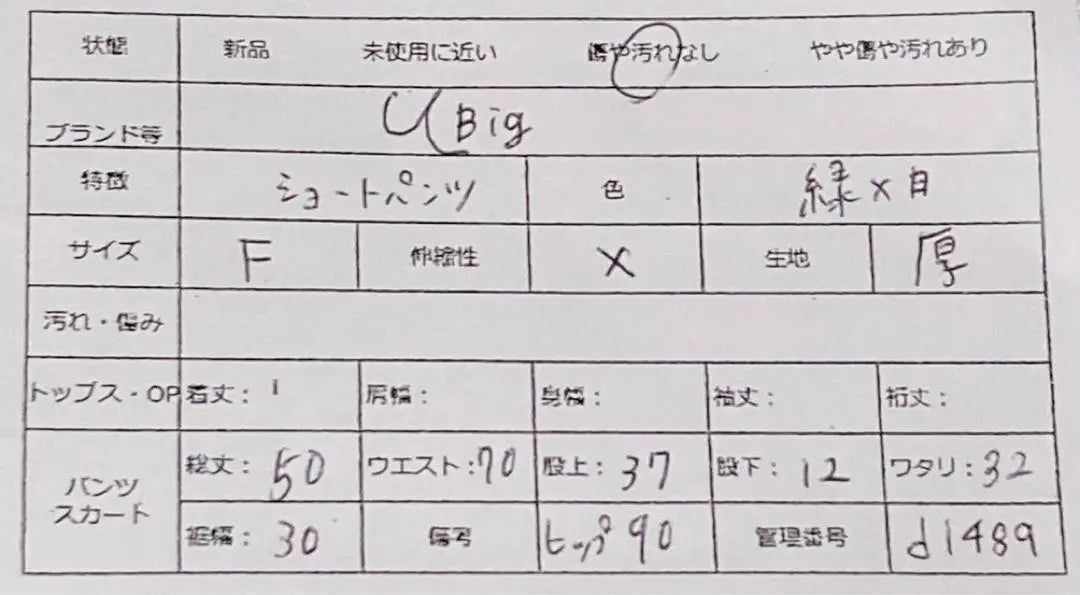 状態 新品 未使用に近い 傷や汚れなし やや傷や汚れあり
ブランド等 U Big
特徴 ショートパンツ 色 緑×白
サイズ F 伸縮性 × 生地 厚
汚れ・傷み
トップス・OP 着丈: 肩幅: 身幅: 袖丈: 裄丈:
パンツ スカート 総丈: 50 ウエスト: 70 股上: 37 股下: 12 ワタリ: 32
裾幅: 30 備考 ヒップ 90 管理番号 d1489